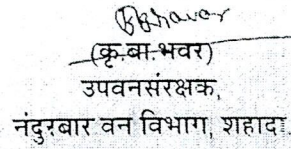 (कृ.बा.भवर)
उपवनसंरक्षक,
नंदुरबार वन विभाग, शहादा.